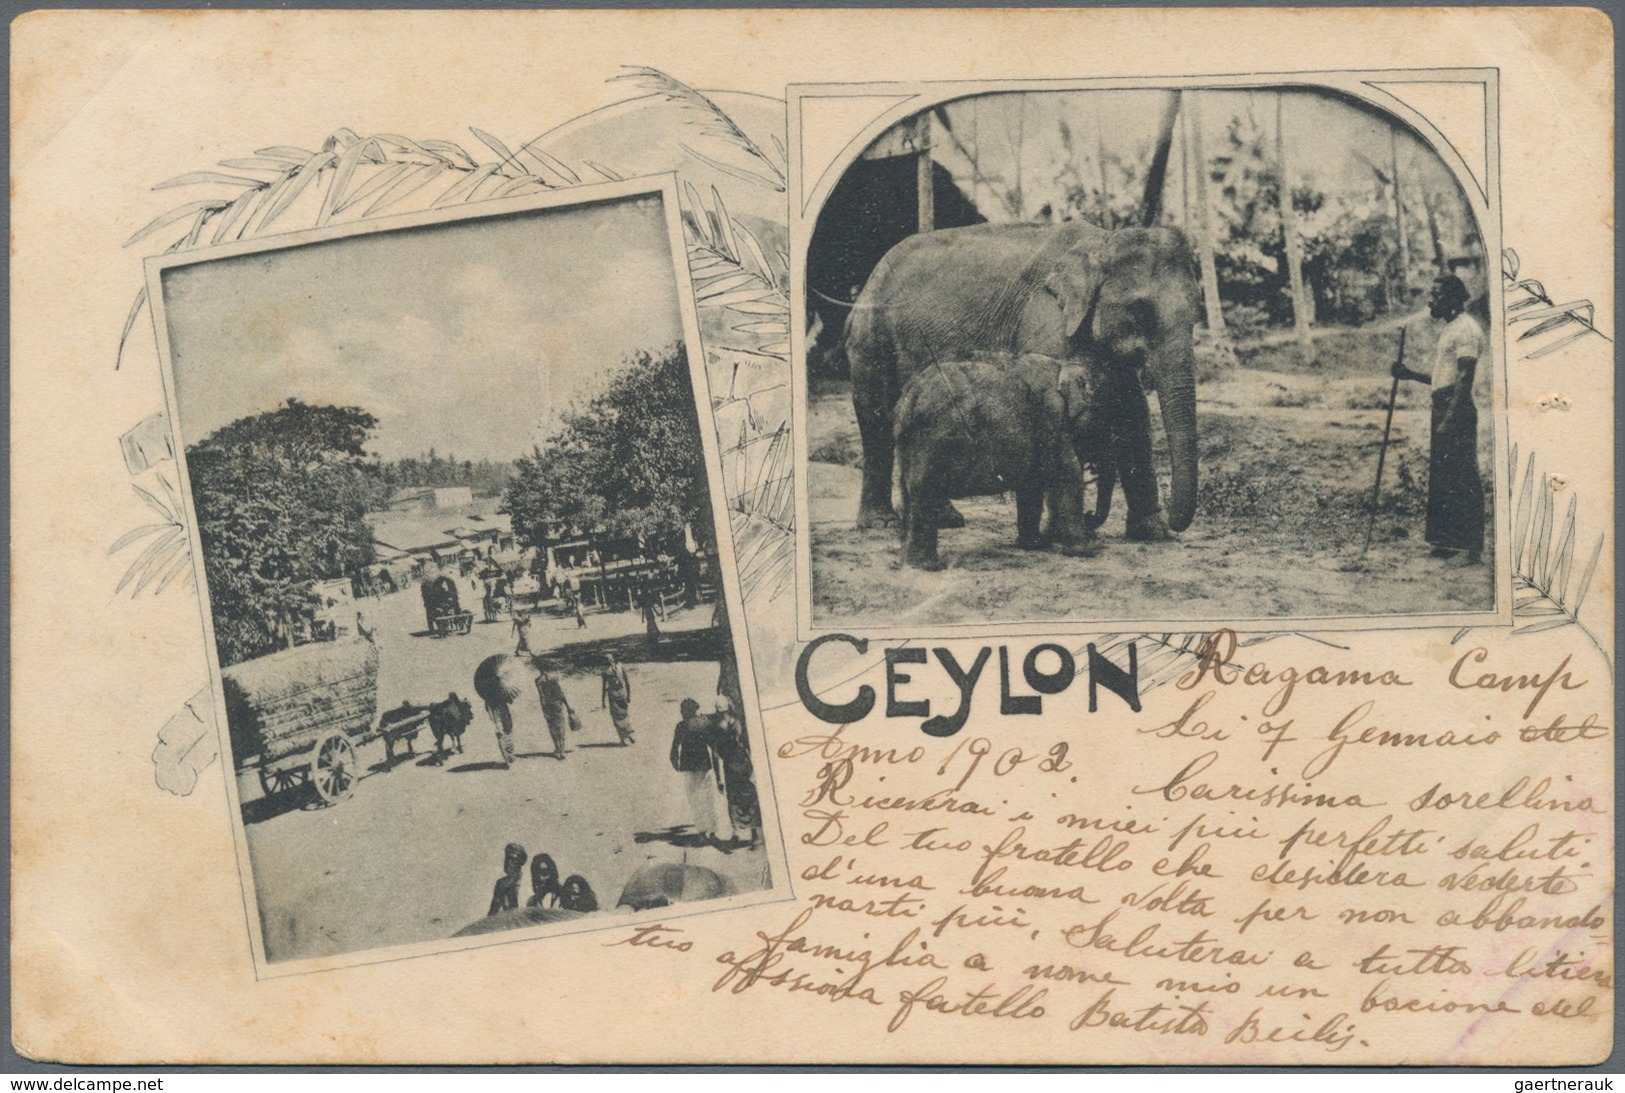 CEYLON
Ragama Camp
Li 7 Gennaio del
Anno 1902.
Carissima sorellina
Riceverai i miei più perfetti saluti.
Del tuo fratello che desidera vederte
d'una buona volta per non abbando=
narti più, Saluterai a tutta
famiglia a nome mio un bacione del
tuo affssiona fatello Batista Beilis.
gaertnerauk